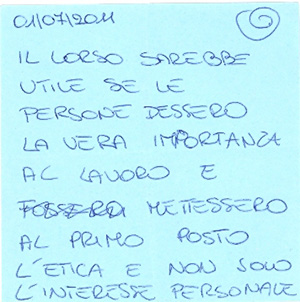 01/07/2011
IL CORSO SAREBBE
UTILE SE LE
PERSONE DESSERO
LA VERA IMPORTANZA
AL LAVORO E
METTESSERO
AL PRIMO POSTO
L'ETICA E NON SOLO
L'INTERESSE PERSONALE